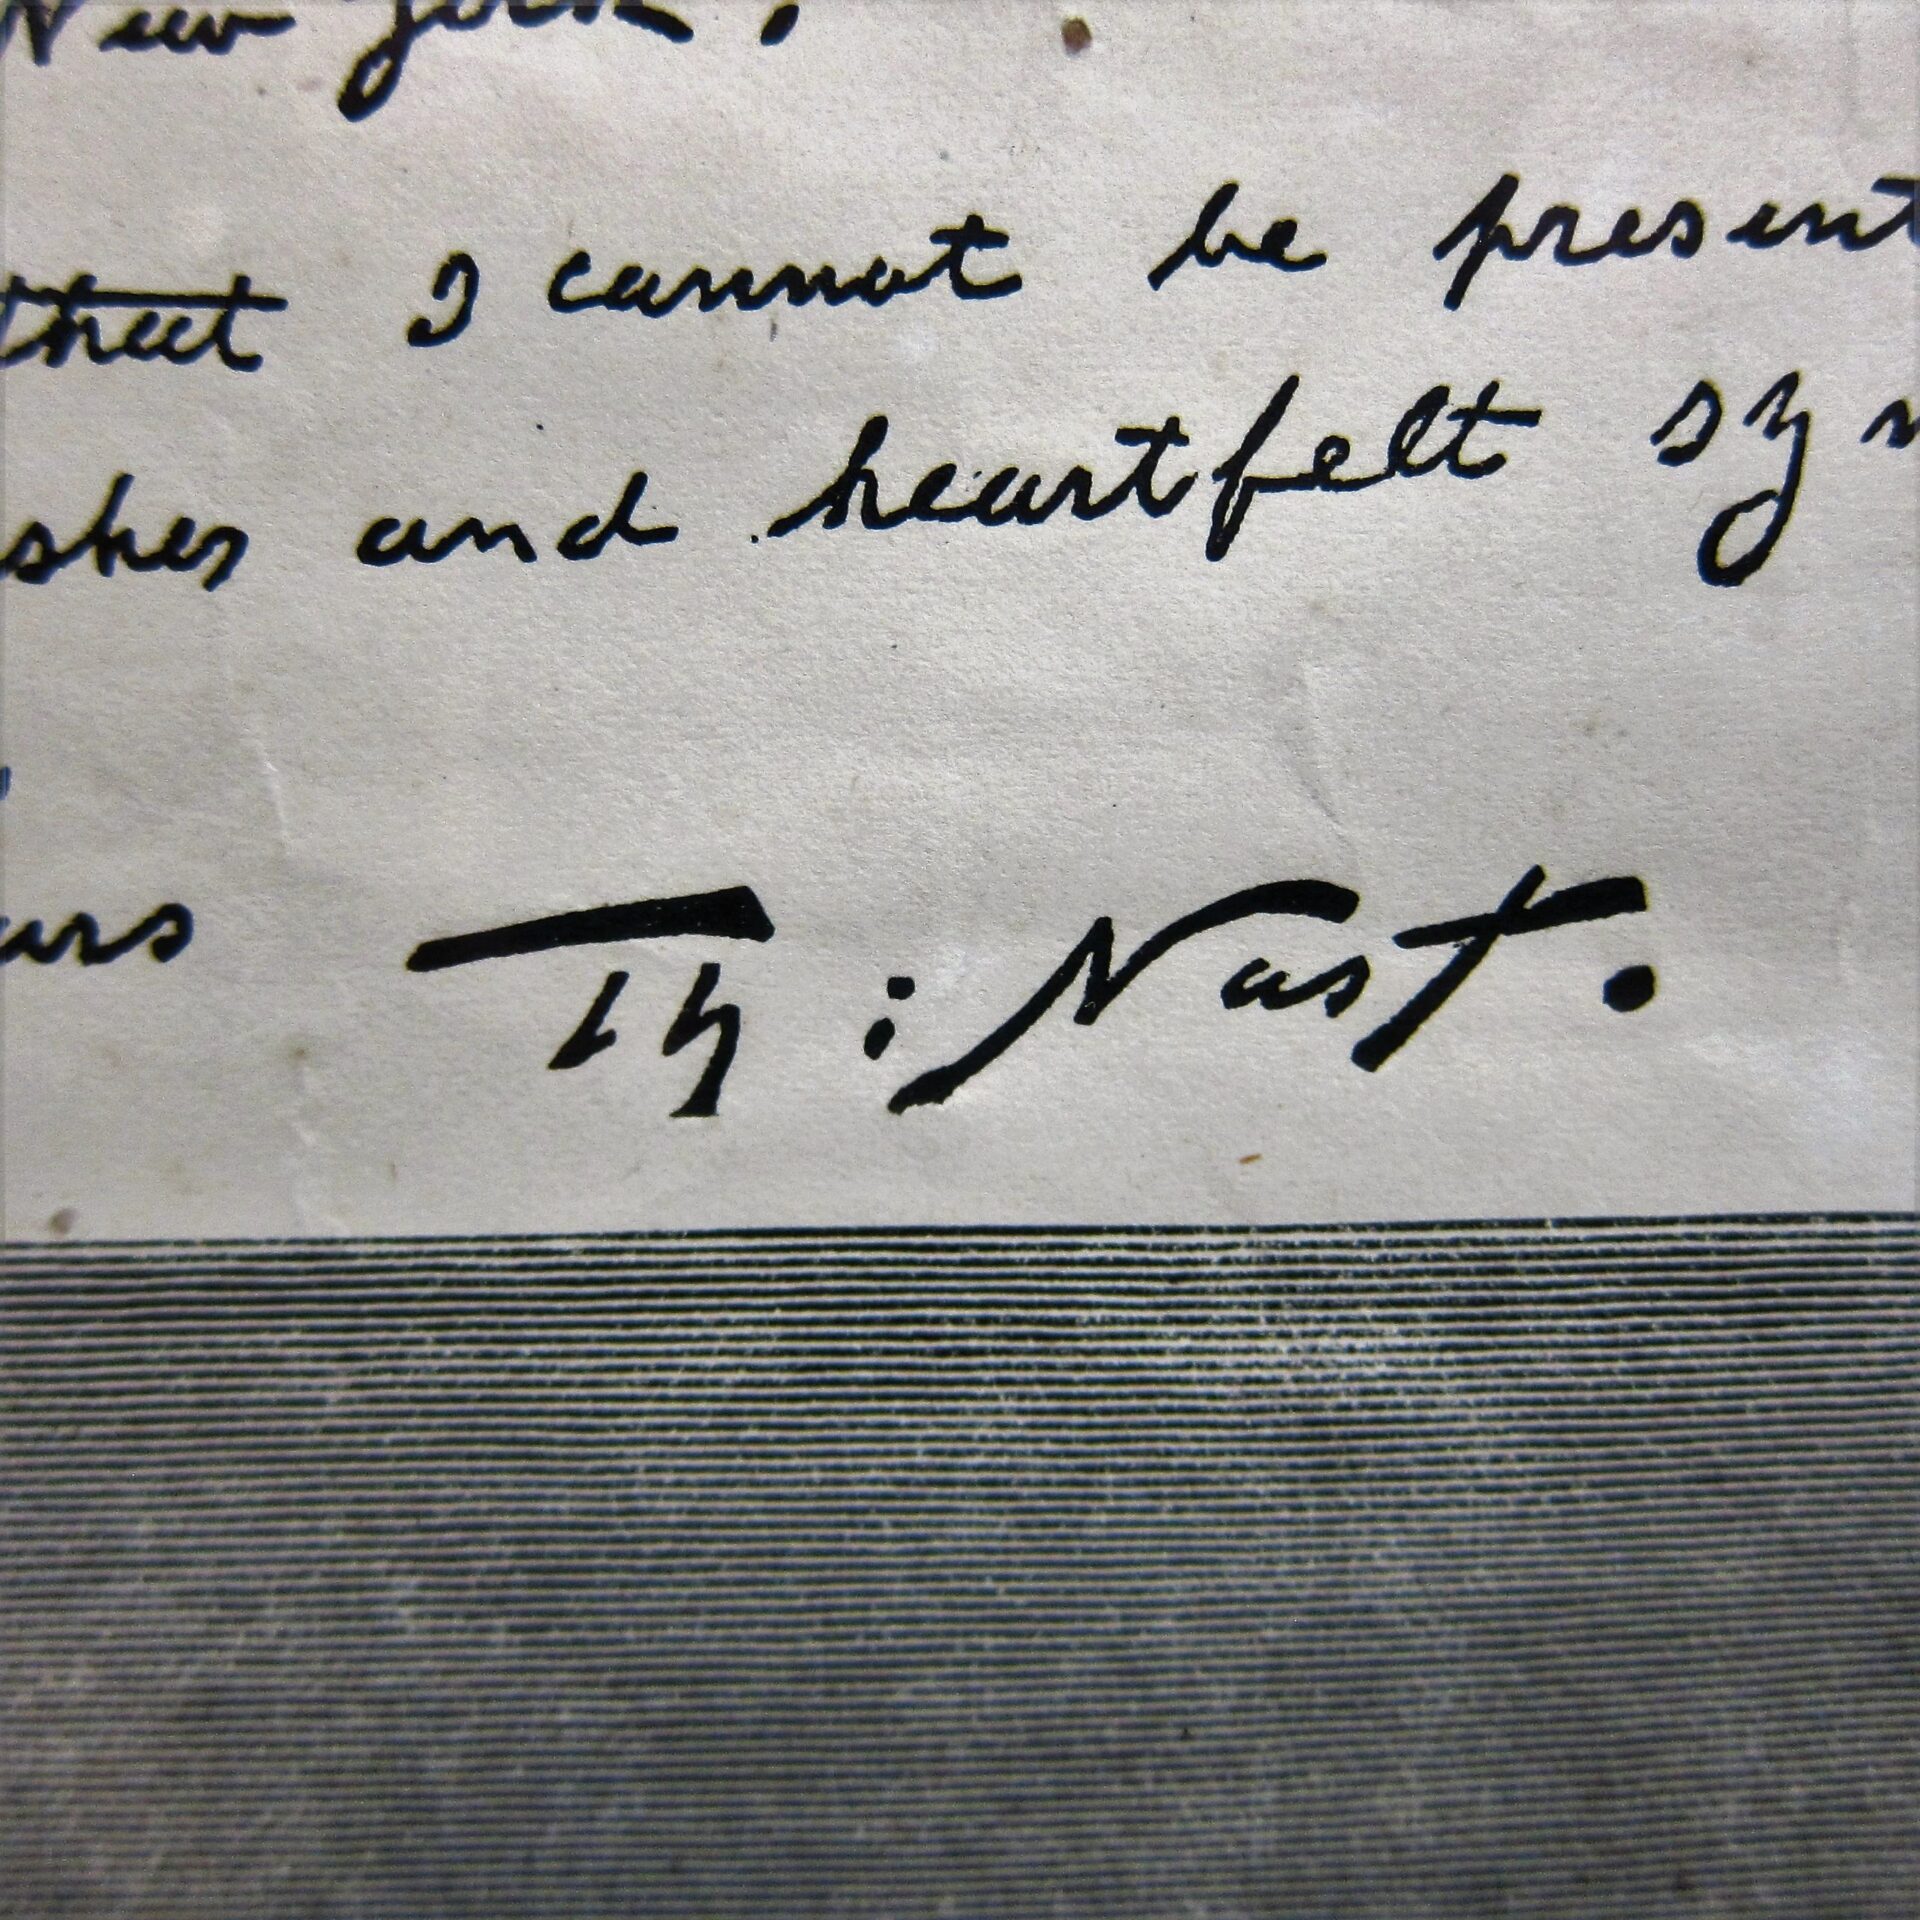 New York.
that I cannot be present
shes and heartfelt sym
urs
Th: Nast.